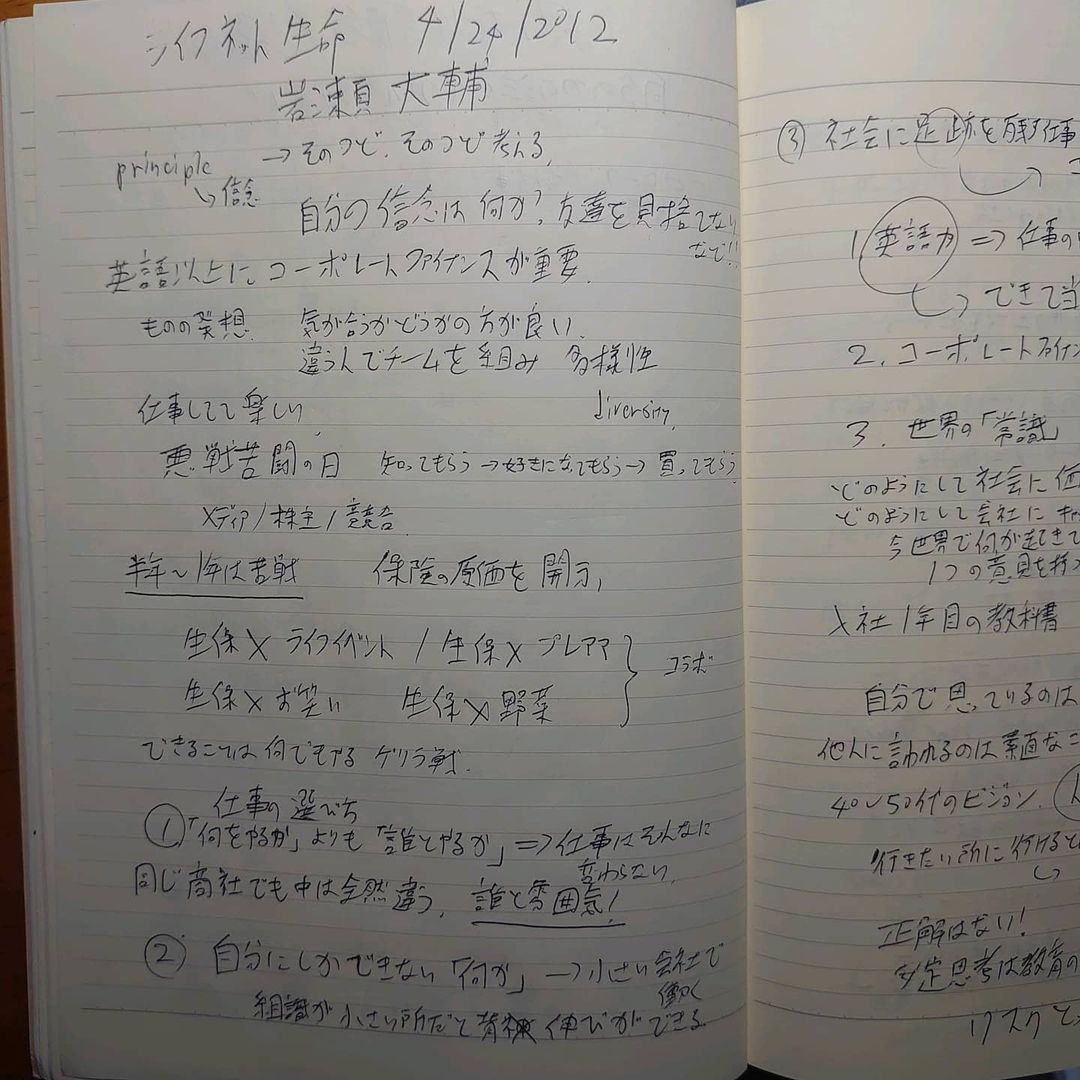 ライフネット生命 4/24/2012
岩瀬 大輔
principle → そのつど、そのつど考える、
↳信念
自分の信念は何か?友達を見捨てない
など!!
英語以上に、コーポレートファイナンスが重要、
ものの発想、 気が合うかどうかの方が良い、
違う人でチームを組み 多様性
仕事してて楽しい、 diversity、
悪戦苦闘の日 知ってもらう→好きになってもらう→買ってもらう
メディア/株主/競合
半年〜1年は苦戦 保険の原価を開示、
生保×ライフイベント/生保×プレママ
コラボ
生保×お笑い 生保×野菜
できることは何でもやる ゲリラ戦、
仕事の選びち
①「何をやるか」よりも「誰とやるか」⇒仕事はそんなに
変わらない、
同じ商社でも中は全然違う、誰と雰囲気!
② 自分にしかできない「何か」→小さい会社で
働く
組織が小さい所だと背伸びができる
③ 社会に足跡を残す仕事
1、英語力 ⇒ 仕事の
↳ できて当
2、コーポレートファイナン
3、世界の「常識」
どのようにして社会に価
どのようにして会社に
今世界で何が起きて
1つの意見を持
入社1年目の教科書
自分で思っているのは
他人に言われるのは素直なこ
40〜50代のビジョン、
行きたい所に行けると
正解はない!
安定思考は教育の
リスクと